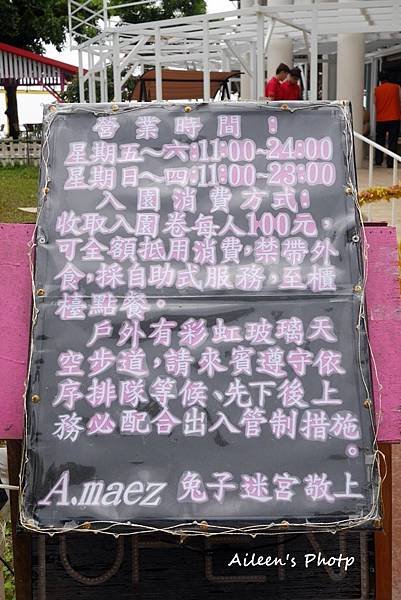 營業時間：
星期五～六:11:00~24:00
星期日～四:11:00~23:00
入園消費方式:
收取入園卷每人100元,
可全額抵用消費,禁帶外
食,採自助式服務,至櫃
檯點餐。
戶外有彩虹玻璃天
空步道,請來賓遵守依
序排隊等候、先下後上
務必配合出入管制措施
。
A.maez 兔子迷宮敬上
OPEN
Aileen's Photp